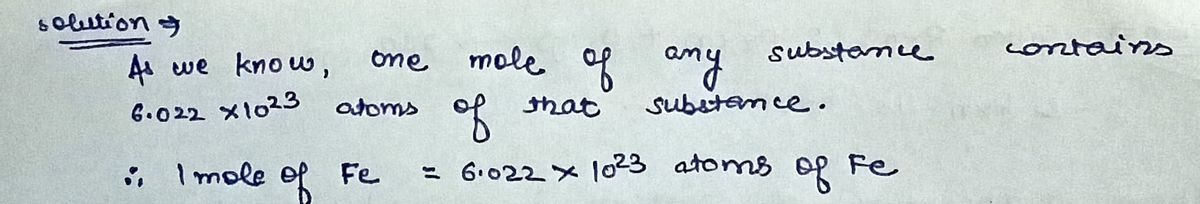 solution →
As we know, one mole of any substance contains
6.022 ×10²³ atoms of that substance.
∴ 1 mole of Fe = 6.022 × 10²³ atoms of Fe